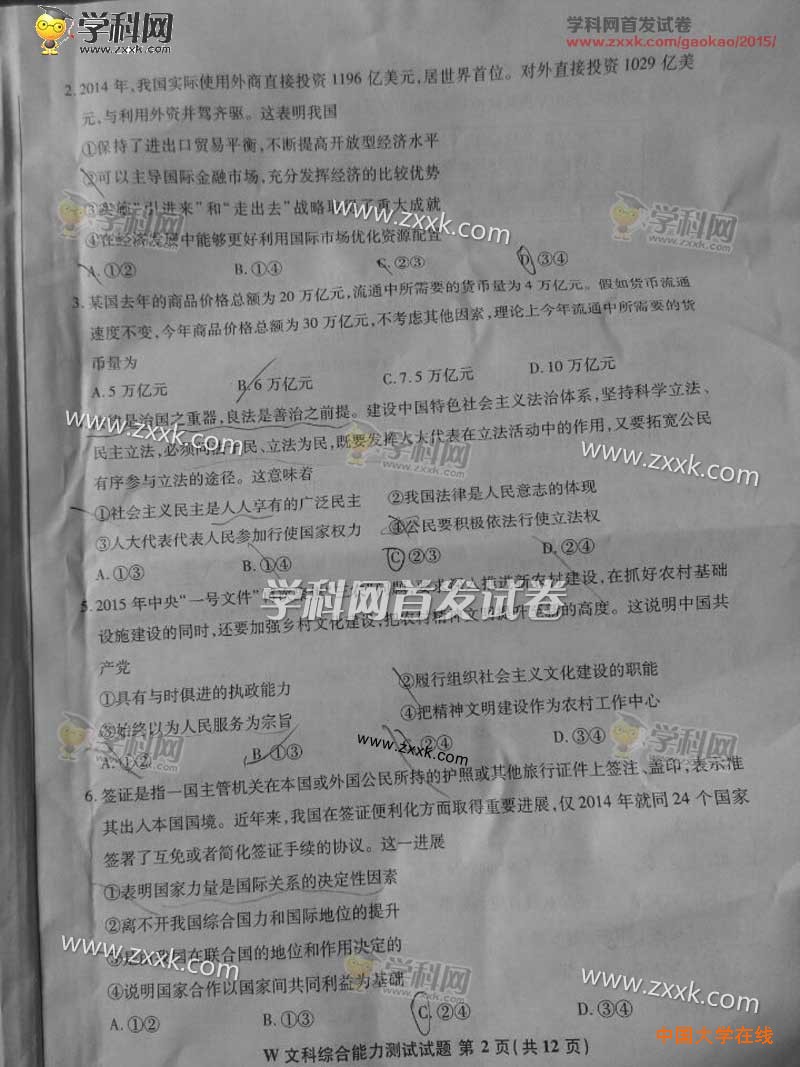 学科网
www.zxxk.com
学科网首发试卷
www.zxxk.com/gaokao/2015/
2. 2014 年,我国实际使用外商直接投资 1196 亿美元,居世界首位。对外直接投资 1029 亿美
元,与利用外资并驾齐驱。这表明我国
①保持了进出口贸易平衡,不断提高开放型经济水平
②可以主导国际金融市场,充分发挥经济的比较优势
③实施“引进来”和“走出去”战略取得了重大成就
④在经济发展中能够更好利用国际市场优化资源配置
A.①② B.①④ C.②③ D.③④
3. 某国去年的商品价格总额为 20 万亿元,流通中所需要的货币量为 4 万亿元。假如货币流通
速度不变,今年商品价格总额为 30 万亿元,不考虑其他因素,理论上今年流通中所需的货
币量为
A.5 万亿元 B.6 万亿元 C.7.5 万亿元 D.10 万亿元
是治国之重器,良法是善治之前提。建设中国特色社会主义法治体系,坚持科学立法、
民主立法,必须 民、立法为民,既要发挥人大代表在立法活动中的作用,又要拓宽公民
有序参与立法的途径。这意味着
①社会主义民主是人人享有的广泛民主 ②我国法律是人民意志的体现
③人大代表代表人民参加行使国家权力 ④公民要积极依法行使立法权
A.①③ B.①④ C.②③ D.②④
5. 2015 年中央“一号文件” 推进新农村建设,在抓好农村基础
设施建设的同时,还要加强乡村文化建设,把农村精神文明提升 的高度。这说明中国共
产党
①具有与时俱进的执政能力 ②履行组织社会主义文化建设的职能
③始终以为人民服务为宗旨 ④把精神文明建设作为农村工作中心
A.①② B.①③ C.②④ D.③④
6. 签证是指一国主管机关在本国或外国公民所持的护照或其他旅行证件上签注、盖印,表示准
其出入本国国境。近年来,我国在签证便利化方面取得重要进展,仅 2014 年就同 24 个国家
签署了互免或者简化签证手续的协议。这一进展
①表明国家力量是国际关系的决定性因素
②离不开我国综合国力和国际地位的提升
③是 我国在联合国的地位和作用决定的
④说明国家合作以国家间共同利益为基础
A.①② C.②④ D.③④
W 文科综合能力测试试题 第 2 页(共 12 页)
中国大学在线